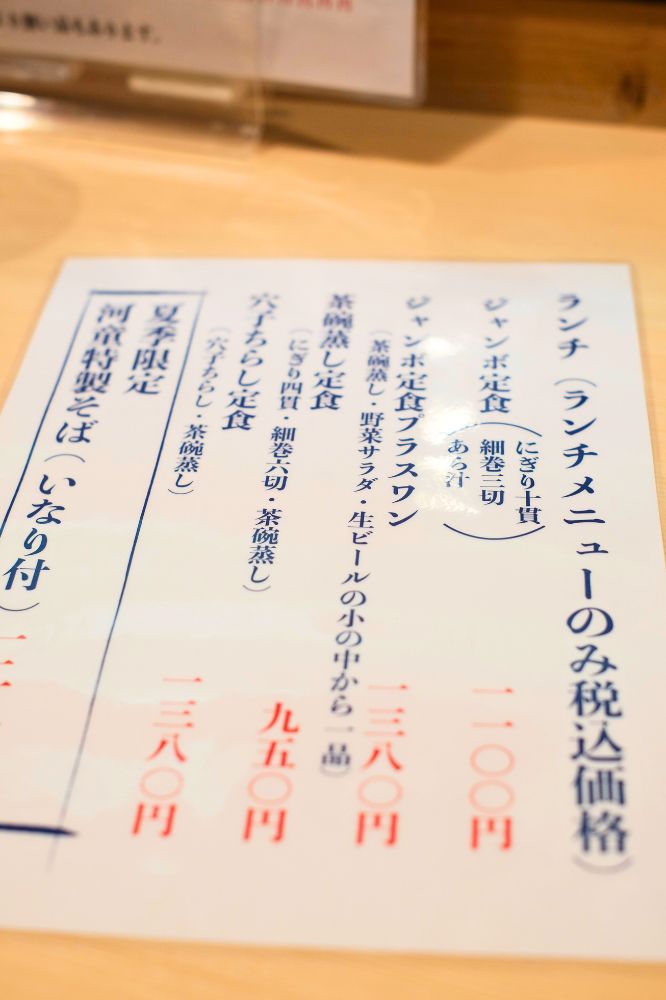 ランチ（ランチメニューのみ税込価格）
ジャンボ定食（にぎり十貫
細巻三切
あら汁）
一一〇〇円
ジャンボ定食プラスワン
（茶碗蒸し・野菜サラダ・生ビールの小の中から一品）
一三八〇円
茶碗蒸し定食
（にぎり四貫・細巻六切・茶碗蒸し）
九五〇円
穴子ちらし定食
（穴子ちらし・茶碗蒸し）
一三八〇円
夏季限定
河童特製そば（いなり付）